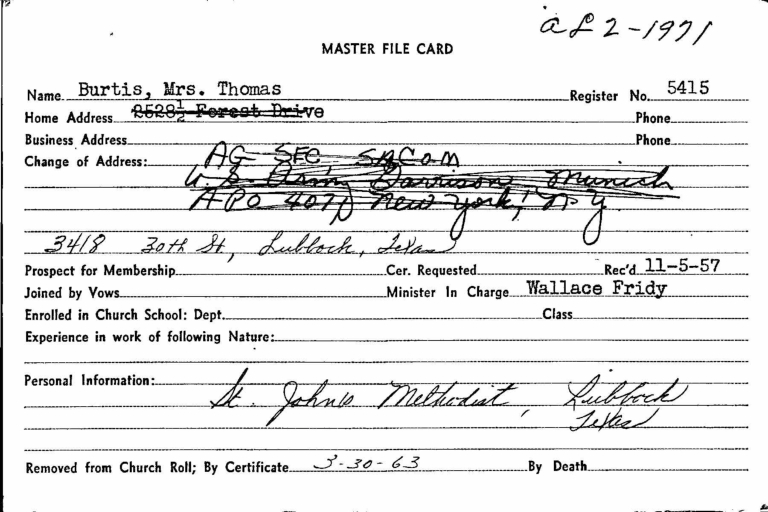 al 2-1971
MASTER FILE CARD
Name Burtis, Mrs. Thomas Register No. 5415
Home Address 2528½ Forest Drive Phone
Business Address Phone
Change of Address: AG SEC SACom
U.S. Army Garrison, Munich
APO 407 New York, N.Y.
3418 30th St, Lubbock, Texas
Prospect for Membership Cer. Requested Rec'd 11-5-57
Joined by Vows Minister In Charge Wallace Fridy
Enrolled in Church School: Dept. Class
Experience in work of following Nature:
Personal Information: St. John's Methodist, Lubbock
Texas
Removed from Church Roll; By Certificate 3-30-63 By Death